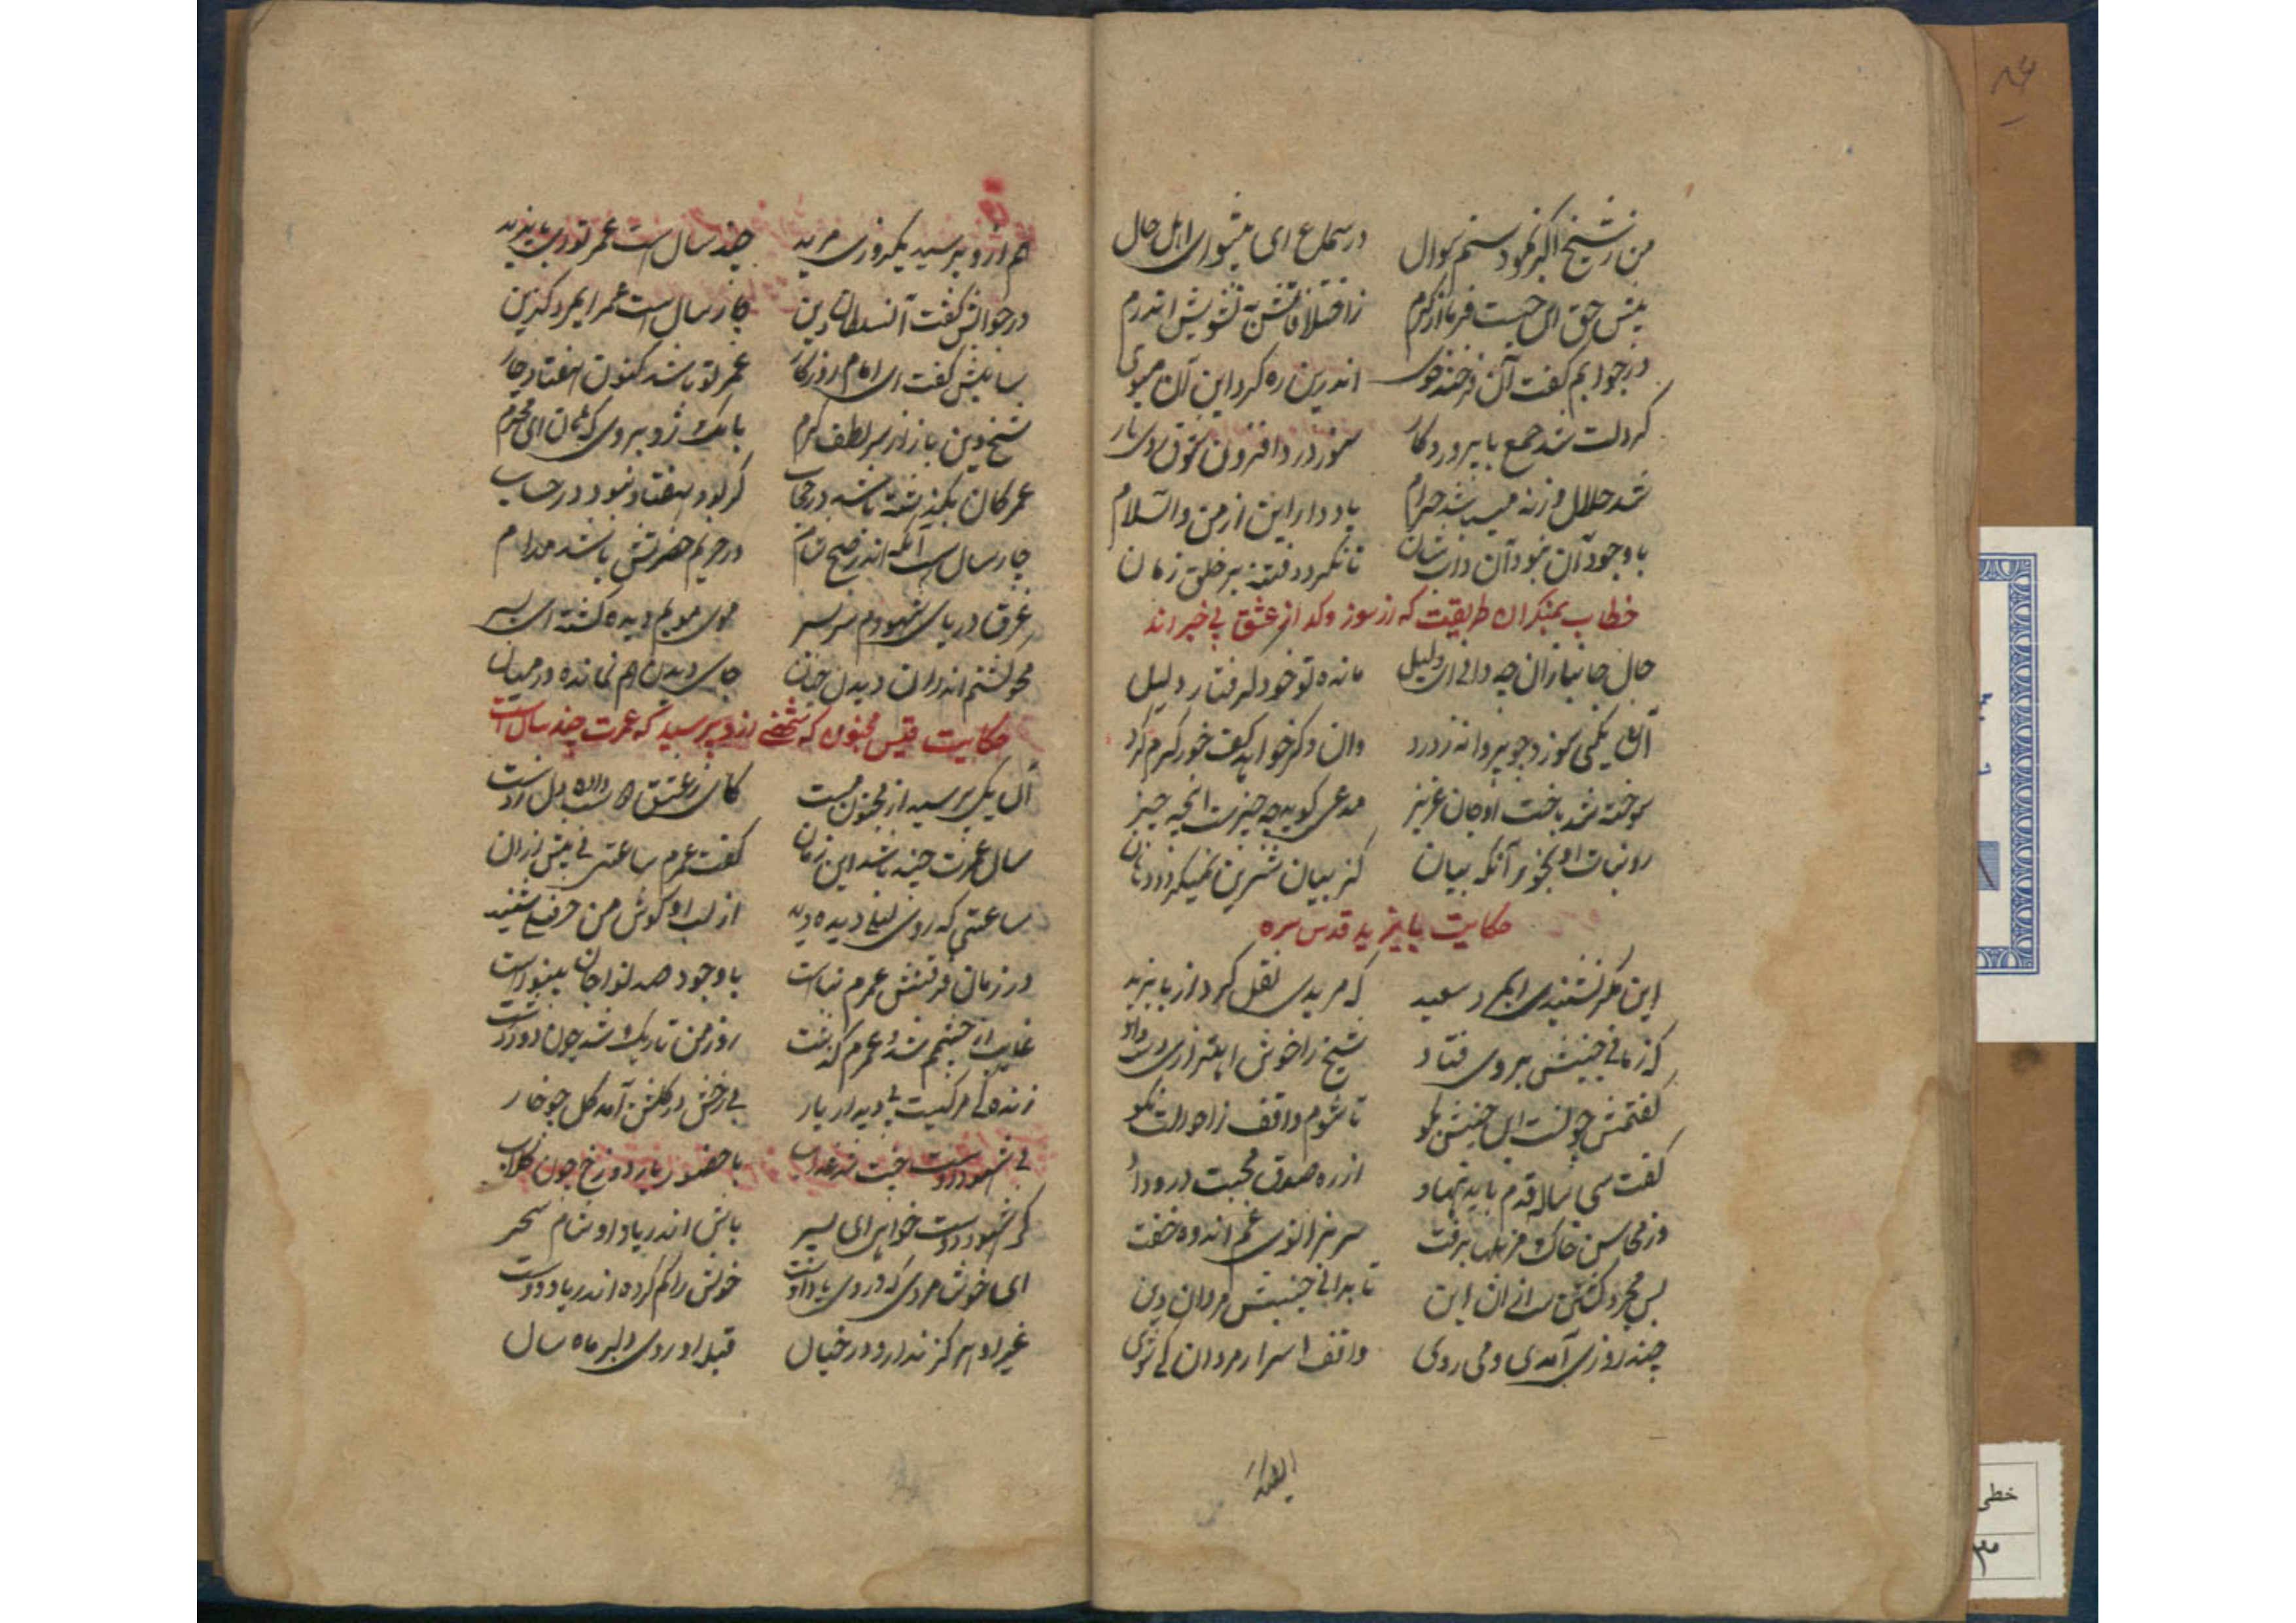 من ز شیخ اکبر نمودستم سوال در سماع ای پیشوای اهل حال
پیش حق این چیست فرما از کرم ز اختلافاتش تشویش اندرم
در جوابم گفت آن فرخنده خوی اندرین ره کرد این آن
کر دلت شد جمع با پروردکار سوز درد افزون شوق روی یار
شد حلال ورنه میباشد حرام یاد دار این از من والسلام
باوجود آن نبود آن تا نکردد فتنه بر خلق زمان
خطاب بمنکران طریقت که از سوز و کداز عشق بی خبر اند
حال جانبازان چه دانی ای دلیل مانده تو خود
آن یکی سوزد چو پروانه ز درد وان دکر خواهد که خود کرم کرد
سوخته شد باخت او جان عزیز مدعی کوید چه چیزست
رو نبات او بخور آنکه بیان کز بیان شیرین نمیکردد دهان
حکایت بایزید قدس سره
این مکر نشنیدی ایمرد سعید که مریدی نقل کرد از بایزید
که زمانی جنبشی بر وی فتاد شیخ را خوش اهتزازی دست داد
کفتمش چونست این جنبش بکو تا شوم واقف ز احوالت نکو
کفت سی ساله قدم باید نهاد از ره صدق محبت در وداد
وز محاسن خاک مزبلها برفت سر بزانوی غم اندوه خفت
پس مجرد کشتن تا بدانی جنبش مردان دین
چند روزی آمدی و می روی واقف اسرار مردان کی شوی
هم ازو پرسید یکروزی مرید چند سال است عمر تو ای بایزید
در جوابش کفت آن سلطان دین چار سال است عمر ایمرد کزین
سایلش کفت ای امام روزکار عمر تو باشد کنون هفتاد چار
شیخ دین باز از سر لطف کرم بانک زد بر وی که ای محترم
عمر کان بکذشته باشد در حجاب کر بود هفتاد نبود در حساب
چار سال است آنکه اندر صبح شام در حریم حضرتش باشد مدام
غرق دریای شهودم سر بسر موی مویم دیده کشته ای پسر
محو کشتم اندر آن دیدن چنان جای دیدن هم نمانده در میان
حکایت قیس مجنون که شخصی ازو پرسید که عمرت چند سال است
آن یکی پرسید از مجنون مست کای ز عشق داده دل ز دست
سال عمرت چند باشد این زمان کفت عمرم ساعتی نی بیش از آن
ساعتی که روی لیلی دیده دید از لب او کوش من حرفی شنید
در زمان فرقتش عمرم نیاست باوجود صد نوا جان بینواست
غایب از چشمم شد عمرم کذشت روز من تاریک شد چون دور کشت
زنده کی مرکیست بی دیدار یار بی رخش در کلشن آمد کل چو خار
بی شهود دوست جنت شد عذاب با حضور یار دوزخ چون کلاب
کر شهود دوست خواهی ای پسر باش اندر یاد او شام سحر
ای خوش مردی که در وی یاد اوست خویش را کم کرده اندر یاد دوست
غیر او هرکز ندارد در خیال قبله او روی دلبر ماه سال
خطی